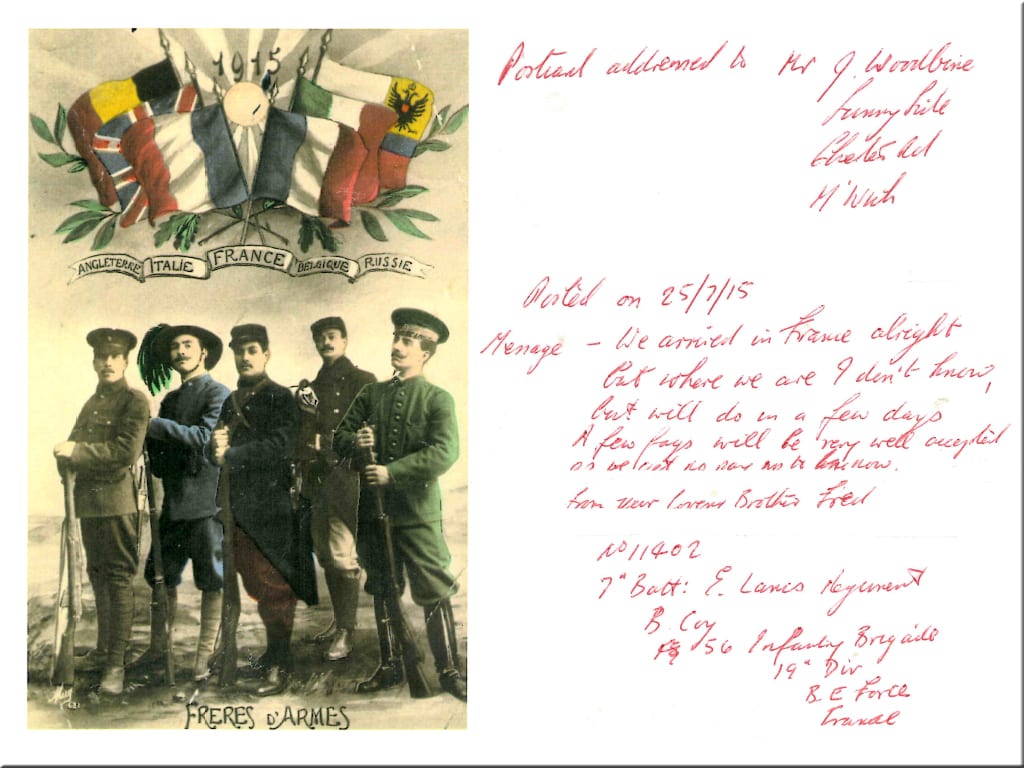 1915
ANGLETERRE ITALIE FRANCE BELGIQUE RUSSIE
FRERES D'ARMES
Postcard addressed to Mr J. Woodbine
Sunny Side
Chester Rd
M'Wich
Posted on 25/7/15
Message - We arrived in France alright
but where we are I don't know,
but will do in a few days
A few fags will be very well accepted
as we no
from your loving Brother Fred
No 11402
7" Batt: E. Lancs Regiment
B. Coy
56 Infantry Brigade
19" Div
B E Force
France